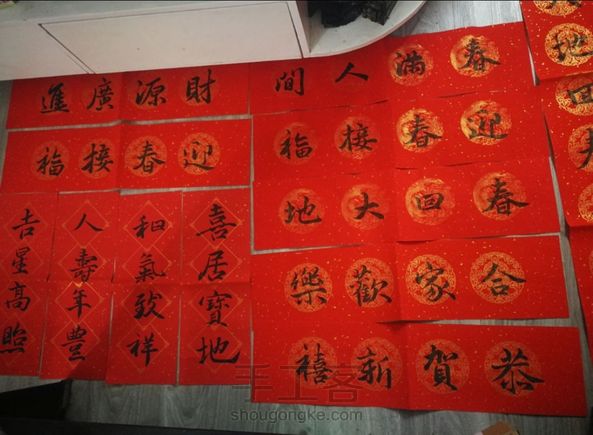 財源廣進
春滿人間
迎春接福
迎春接福
春回大地
合家歡樂
恭賀新禧
喜居寶地
和氣致祥
人壽年豐
吉星高照
地
回
手工客
shougongke.com